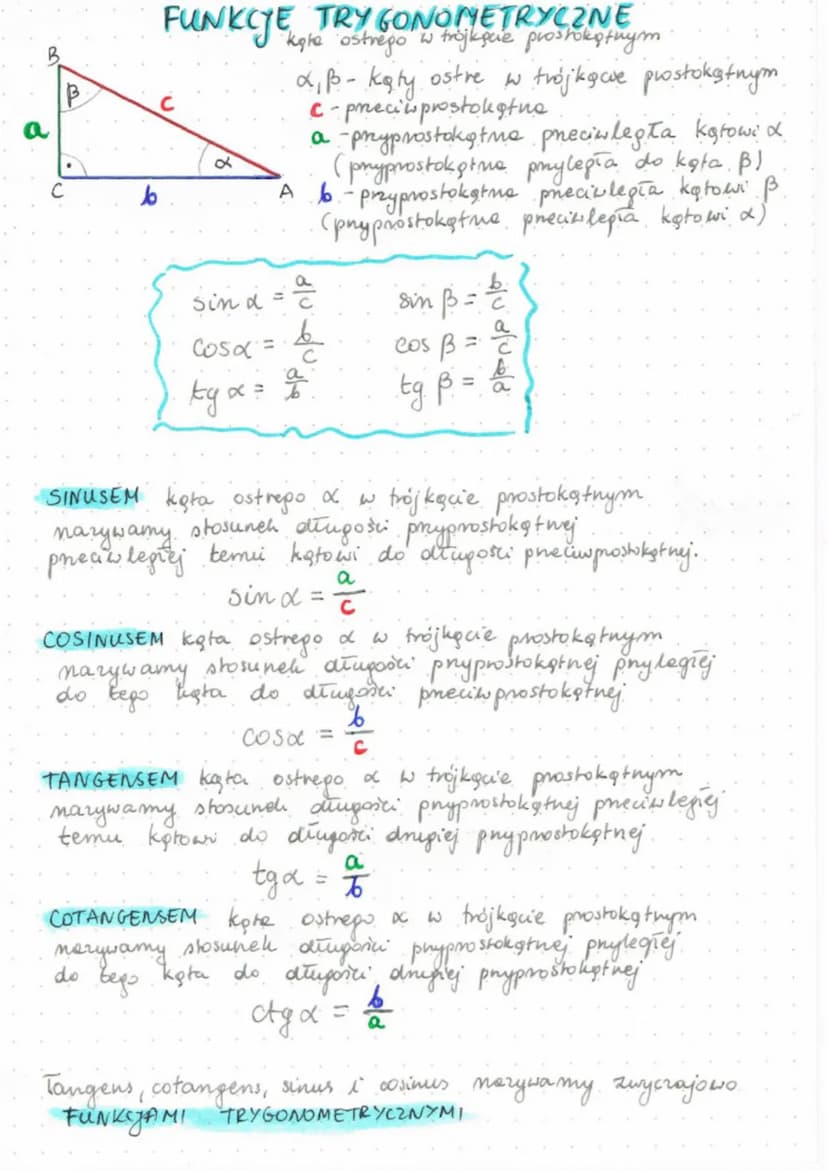 FUNKCJE TRYGONOMETRYCZNE
kąta ostrego w trójkącie prostokątnym
B
β
c
a
α
C
b
A
α, β - kąty ostre w trójkącie prostokątnym
c - przeciwprostokątna
a - przyprostokątna przeciwległa kątowi α
(przyprostokątna przyległa do kąta β)
b - przyprostokątna przeciwległa kątowi β
(przyprostokątna przeciwległa kątowi α)
sin α = a/c
sin β = b/c
cos α = b/c
cos β = a/c
tg α = a/b
tg β = b/a
SINUSEM kąta ostrego α w trójkącie prostokątnym
nazywamy stosunek długości przyprostokątnej
przeciwległej temu kątowi do długości przeciwprostokątnej.
sin α = a/c
COSINUSEM kąta ostrego α w trójkącie prostokątnym
nazywamy stosunek długości przyprostokątnej przyległej
do tego kąta do długości przeciwprostokątnej
cos α = b/c
TANGENSEM kąta ostrego α w trójkącie prostokątnym
nazywamy stosunek długości przyprostokątnej przeciwległej
temu kątowi do długości drugiej przyprostokątnej
tg α = a/b
COTANGENSEM kąta ostrego α w trójkącie prostokątnym
nazywamy stosunek długości przyprostokątnej przyległej
do tego kąta do długości drugiej przyprostokątnej
ctg α = b/a
Tangens, cotangens, sinus i cosinus nazywamy zwyczajowo
FUNKCJAMI TRYGONOMETRYCZNYMI